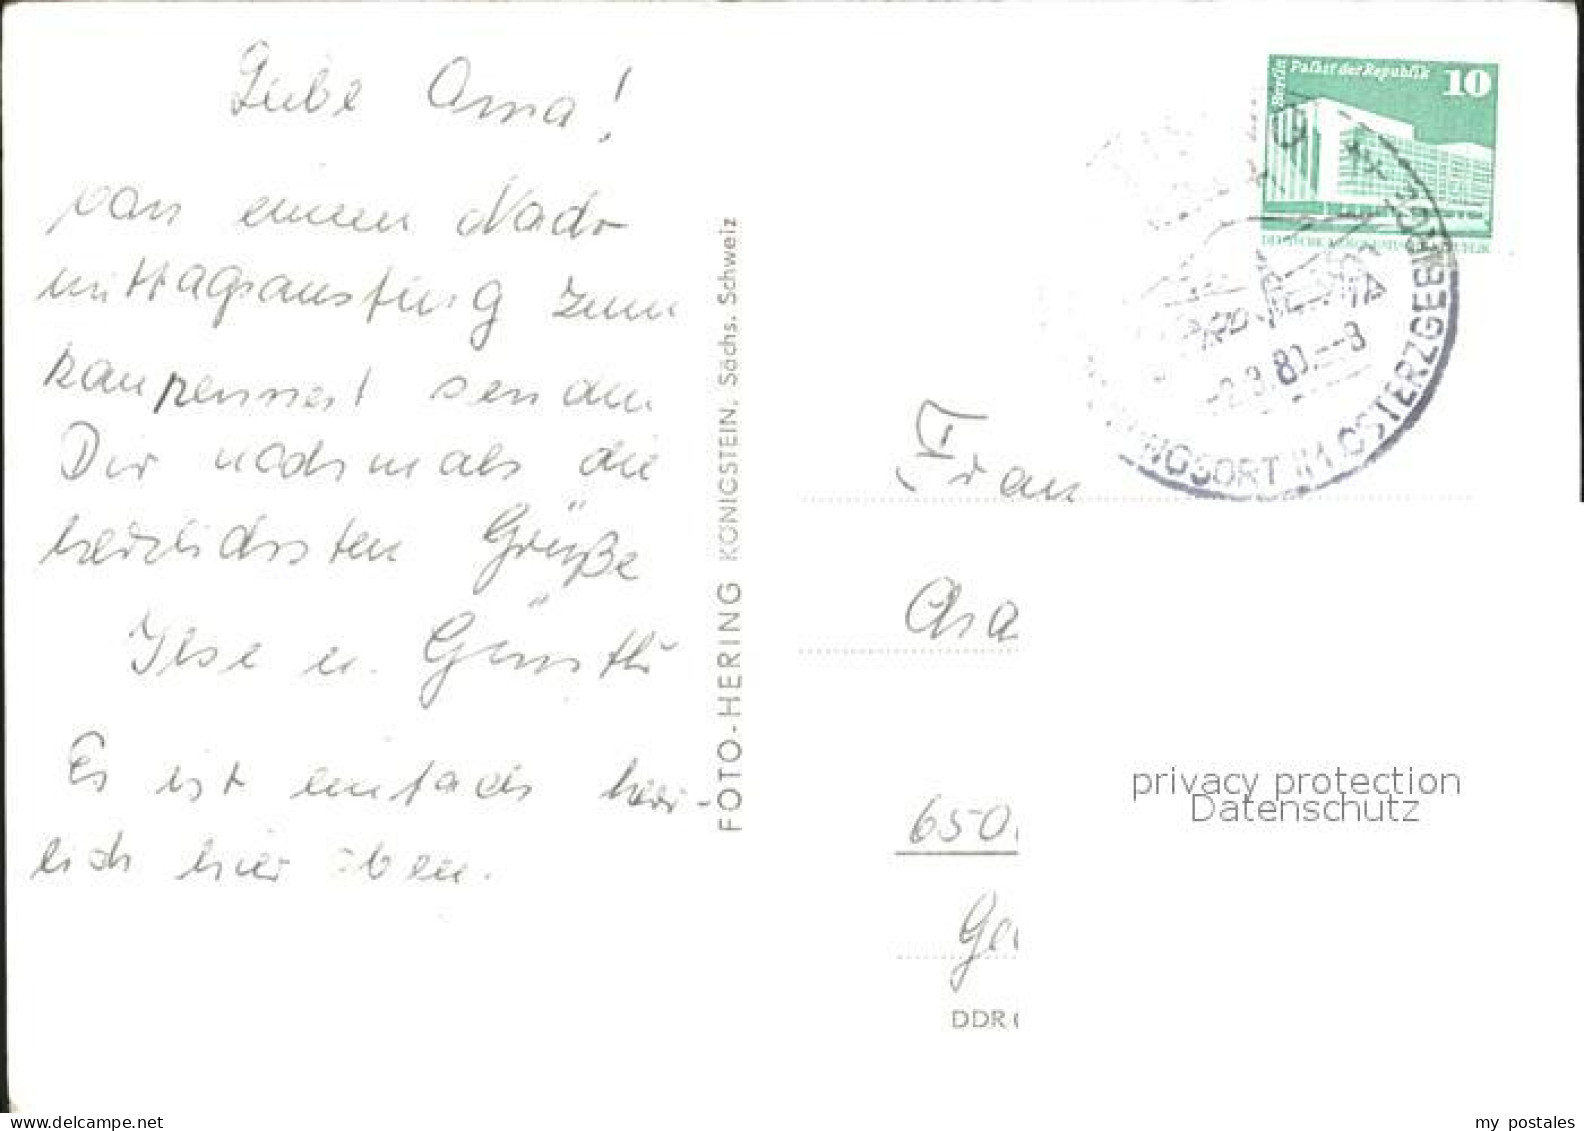 Liebe Oma!
von einem Nach-
mittagsausflug zum
senden
Dir nochmals die
herzlichsten Grüße
Ilse u. Günth
Es ist einfach herr-
lich hier oben.
FOTO-HERING KÖNIGSTEIN, Sächs. Schweiz
Berlin Palast der Republik 10
DEUTSCHE DEMOKRATISCHE REPUBLIK
-2.3.80.--8
NGSORT IM OSTERZGEB
Frau
650
DDR
privacy protection
Datenschutz
my postales